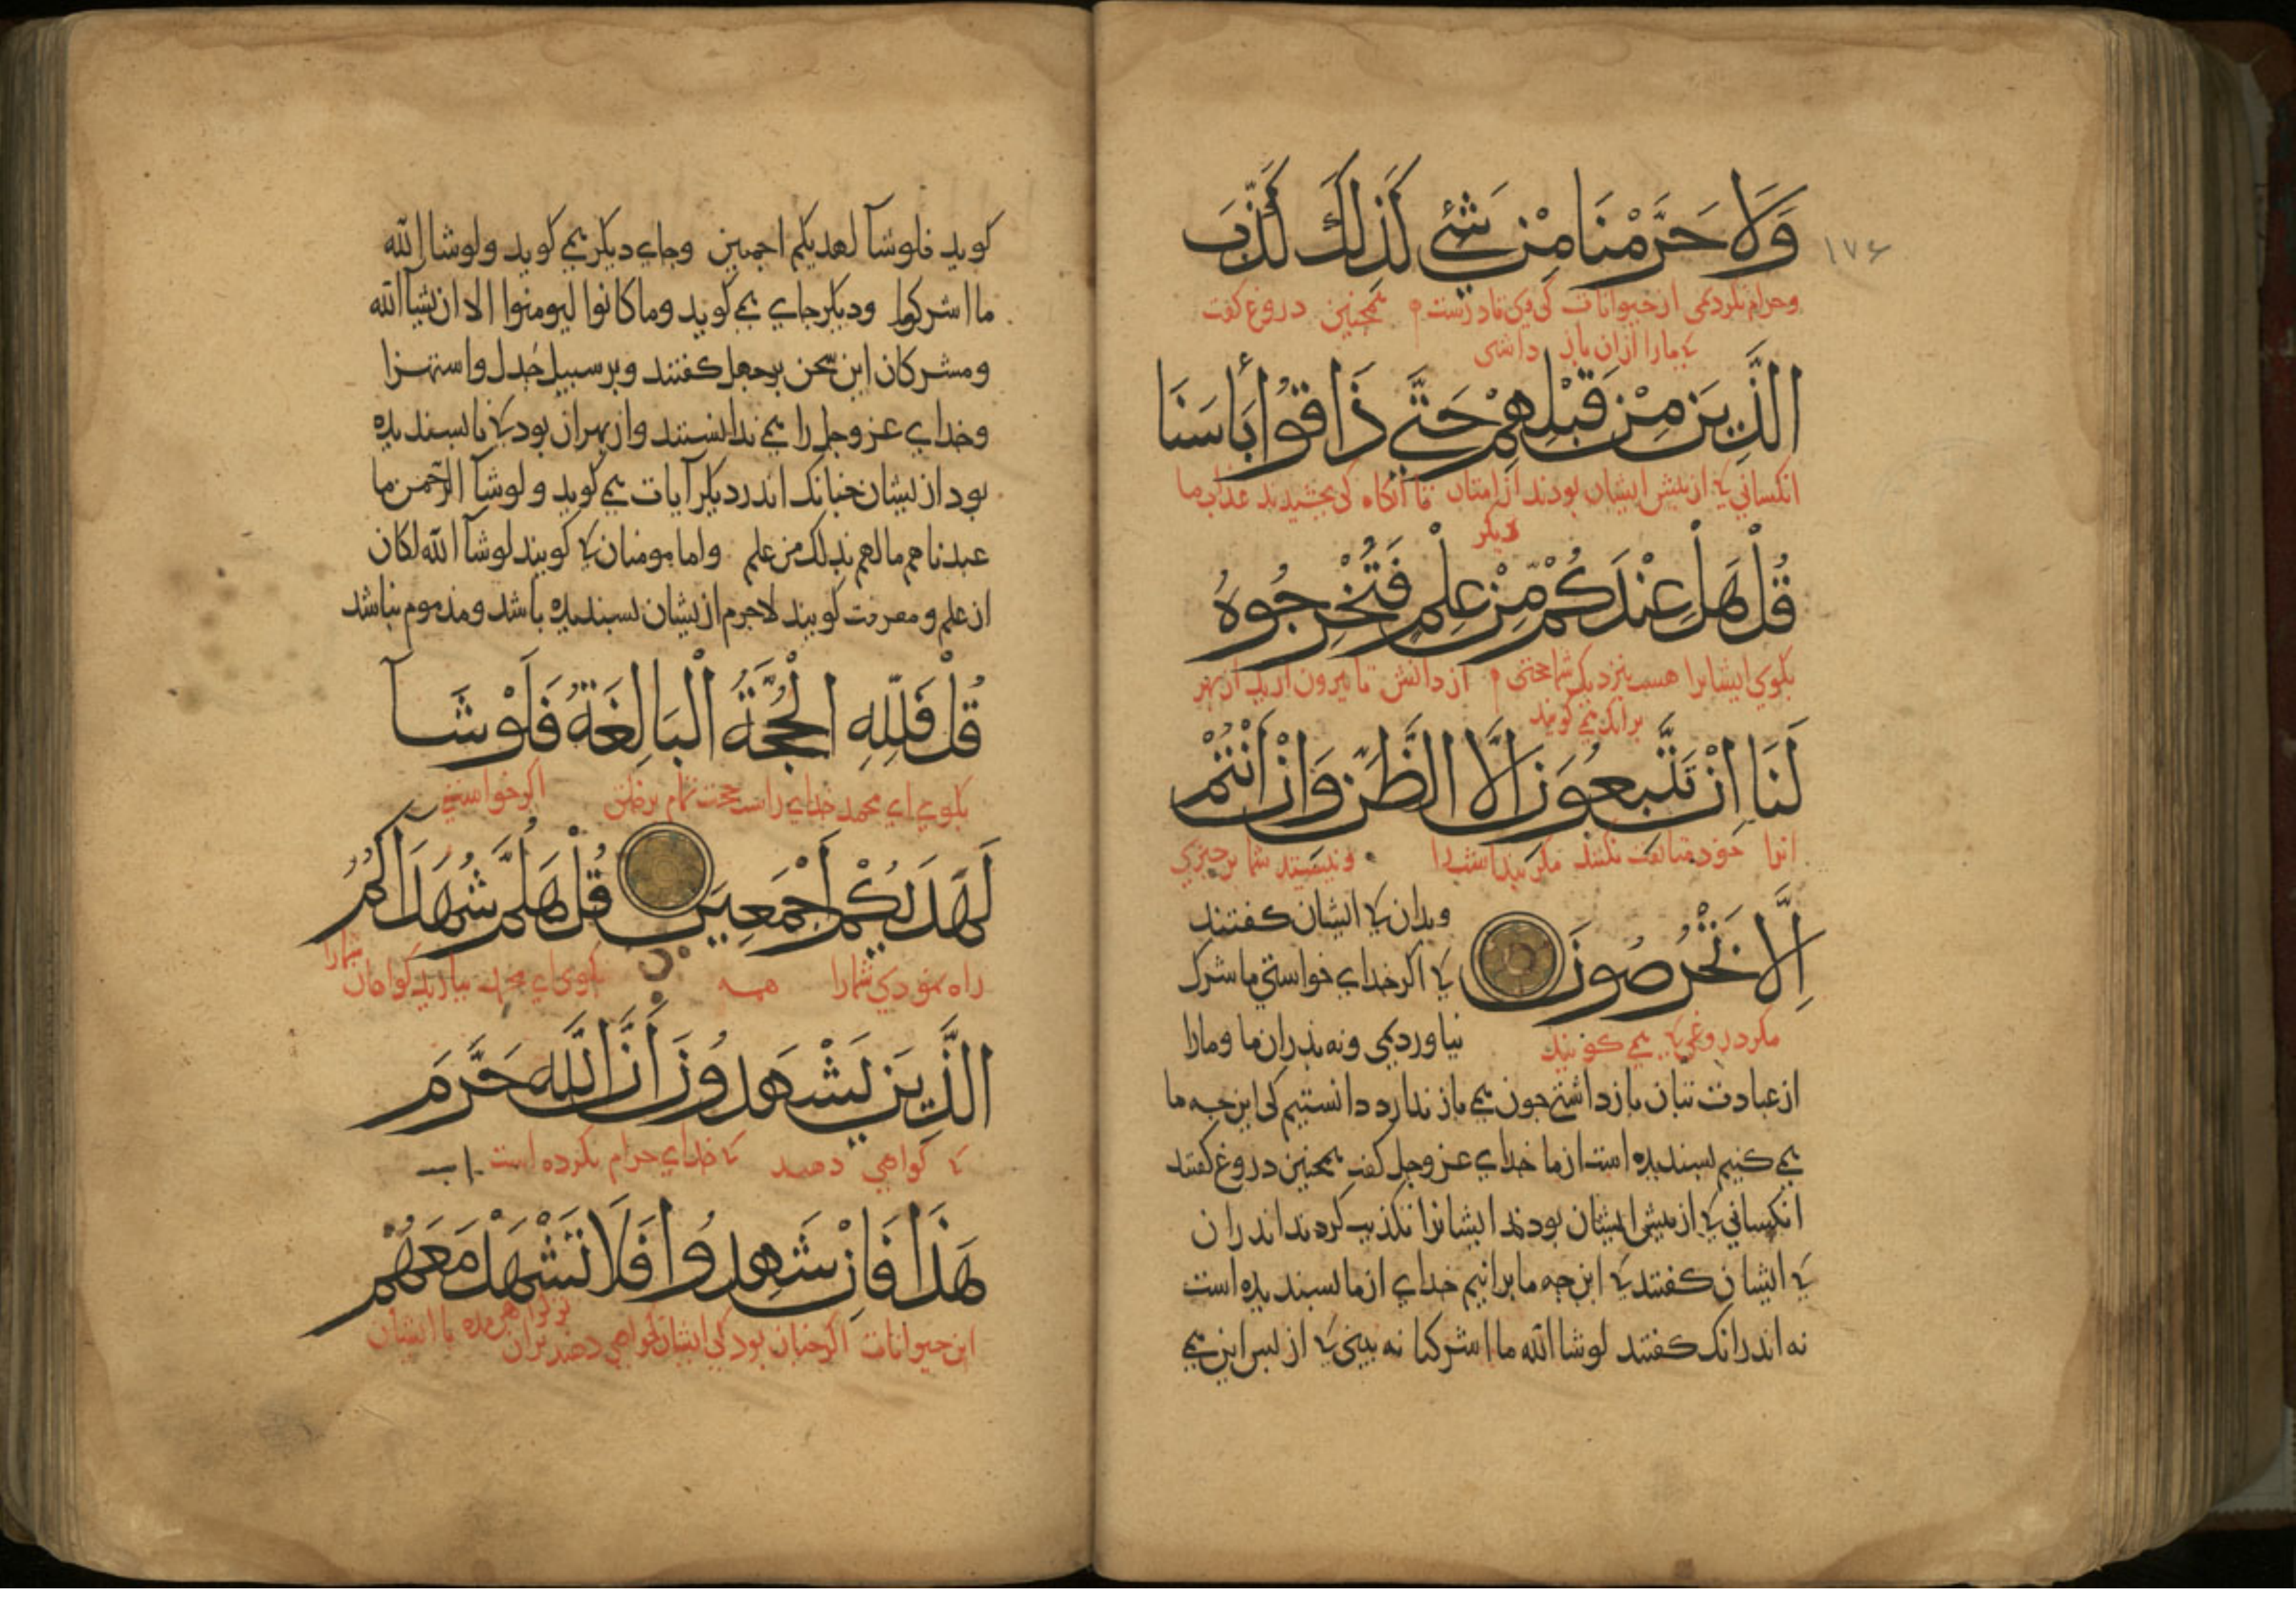 ۱۷۶
وَلَا حَرَّمْنَا مِنْ شَئٍ كَذَلِكَ كَذَّبَ
وحرام نكردمی از حیوانات کی همچنین دروغ گفت
ما را ازان باز داشتی
الَّذِينَ مِنْ قَبْلِهِمْ حَتَّى ذَاقُوا بَأْسَنَا
انکسانی که از پیش ایشان بودند از امتان تا آنگاه کی بچشیدند عذاب ما
دیگر
قُلْ هَلْ عِنْدَكُمْ مِنْ عِلْمٍ فَتُخْرِجُوهُ
بگوی ایشانرا هست نزدیک شما حجتی از دانش تا بیرون آرید از بهر
لَنَا اِنْ تَتَّبِعُونَ اِلَّا الظَّنَّ وَاِنْ اَنْتُمْ
انرا خود متابعت نکنند مکر شما بر چیزی
اِلَّا تَخْرُصُونَ
مکر دروغی که می گویند
وبدان که ایشان کفتند
که اکر خدای خواستی ما شرک
نیاوردمی ونه پدران ما وما را
از عبادت بتان باز داشتی چون می باز ندارد دانستیم کی این جه ما
می کنیم بسندیده است از ما خدای عز وجل کفت همچنین دروغ کفتند
انکسانی که از پیش ایشان بودند ایشانرا تکذیب کردند اندران
که ایشان کفتند که این جه ما برانیم خدای از ما بسندیده است
نه اندرانک کفتند لوشا الله ما اشرکنا نه بینی که از پس این می
کوید فلو شآ لهديكم اجمعين وجای دیکر می کوید ولو شا الله
ما اشركوا ودیکر جای می کوید وما كانوا ليومنوا الا ان يشآ الله
ومشرکان این سخن بجهل کفتند وبر سبیل جدل واستهزا
وخدای عز وجل را می ندانستند واز بهر ان بود که نابسندیده
بود از یشان جنانک اندر دیکر آیات می کوید ولو شآ الرحمن ما
عبدناهم ما لهم بذلك من علم واما مومنان که کویند لو شآ الله لكان
از علم ومعرفت کویند لاجرم از یشان بسندیده باشد ومذموم نباشد
قُلْ فَلِلّٰهِ الْحُجَّةُ الْبَالِغَةُ فَلَوْ شَآ
بکوی ای محمد خدای راست حجت تمام بر خلق اکر خواستی
لَهَدَيكُمْ اَجْمَعِينَ قُلْ هَلُمَّ شُهَدَآكُمُ
راه نمودی شما را همه بکوی ای محمد بیارید کواهان شما را
الَّذِينَ يَشْهَدُونَ اَنَّ اللّٰهَ حَرَّمَ
که کواهی دهند که خدای حرام بکرده است
هَذَا فَاِنْ شَهِدُوا فَلَا تَشْهَدْ مَعَهُمْ
این حیوانات اکر جنان بود کی ایشان کواهی دهند بران با ایشان